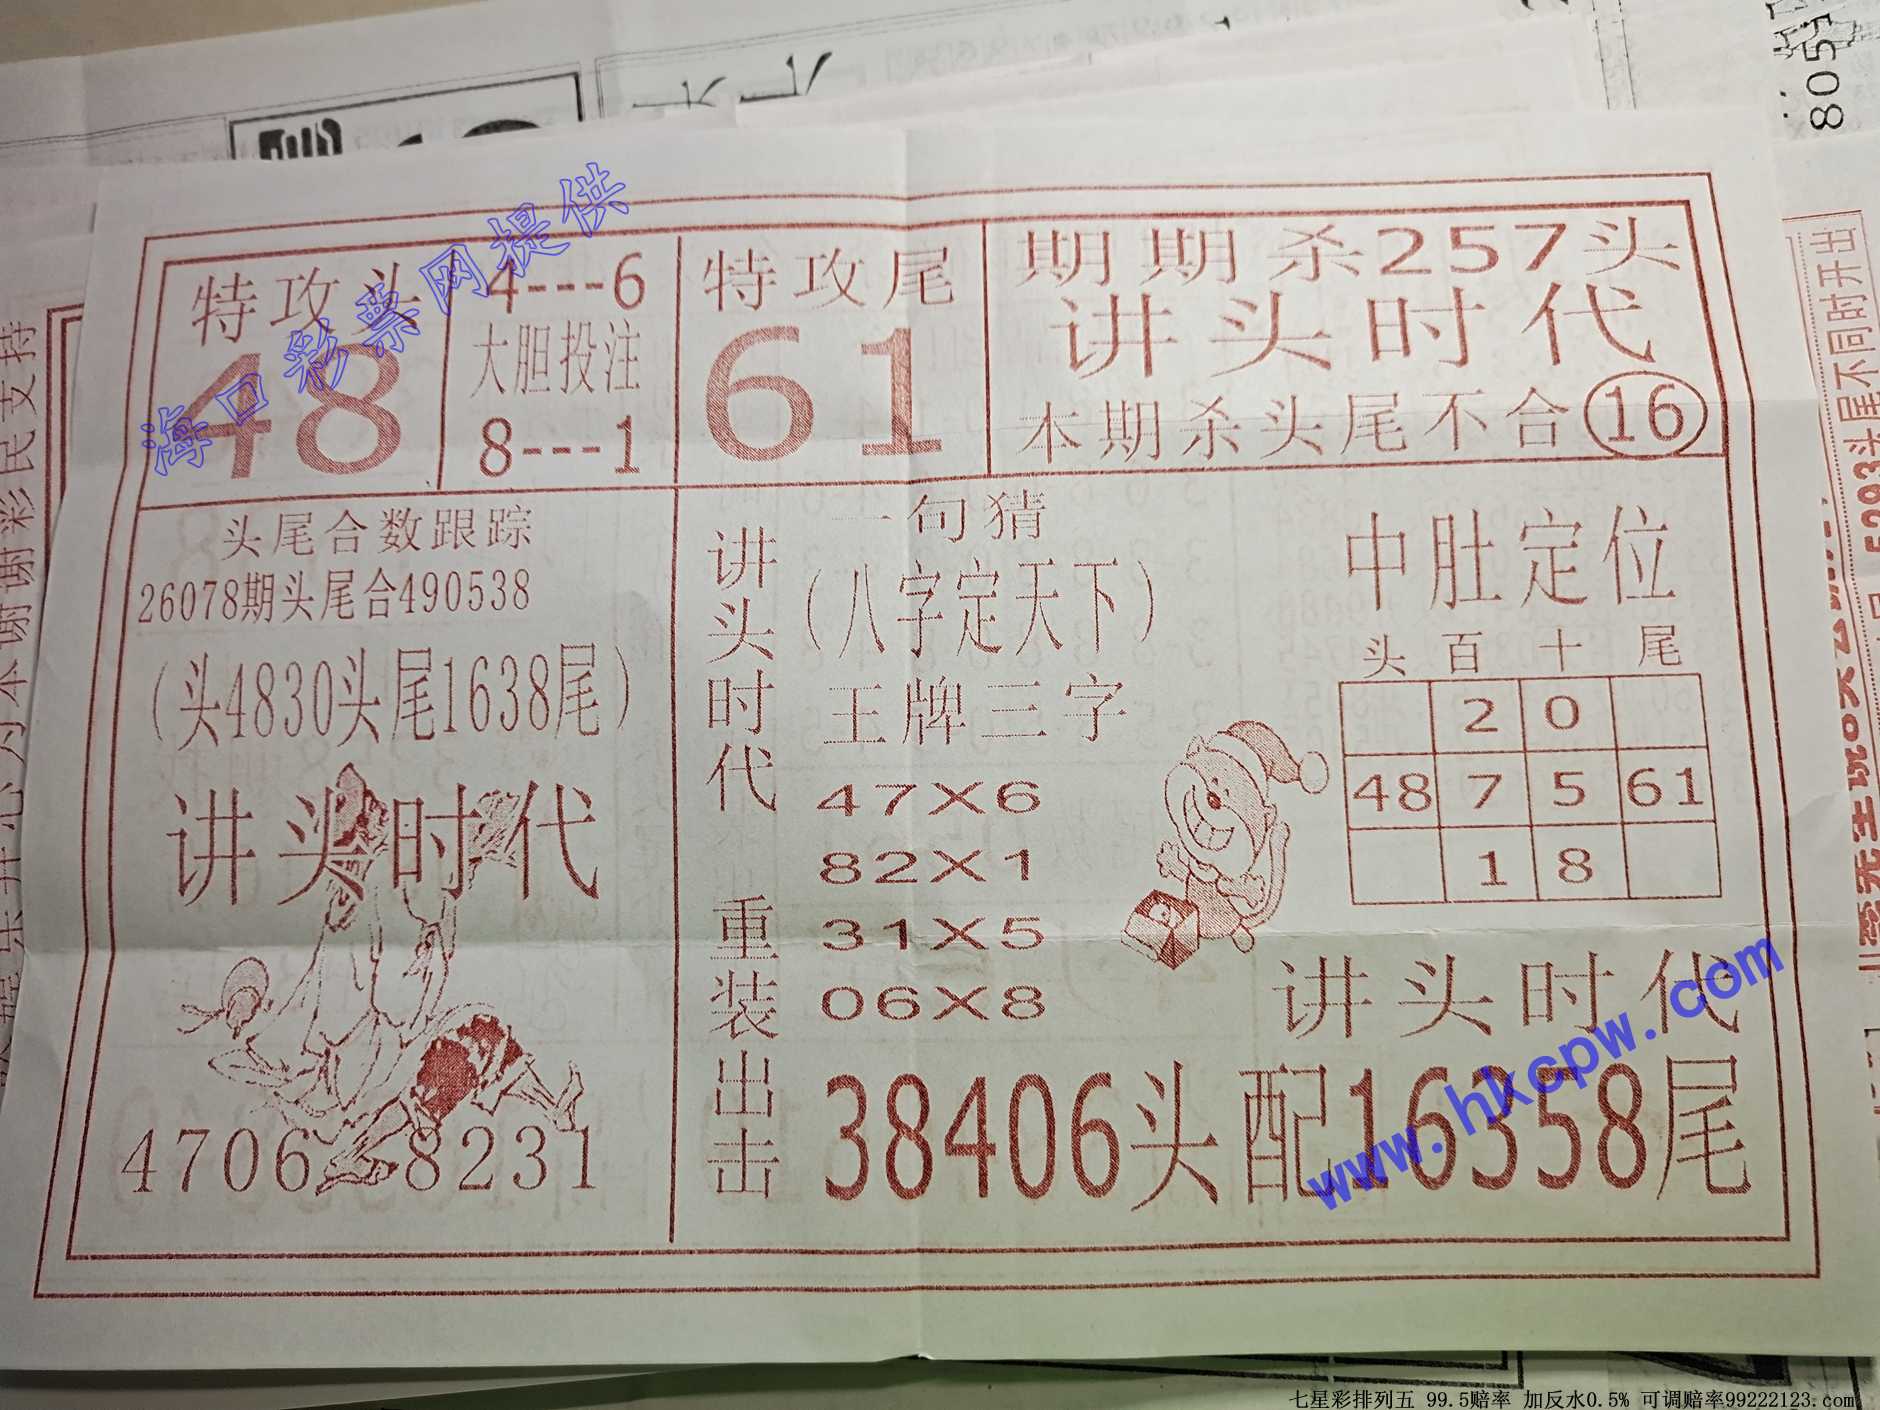 特攻头
48
4---6
大胆投注
8---1
特攻尾
61
期期杀257头
讲头时代
本期杀头尾不合16
头尾合数跟踪
26078期头尾合490538
(头4830头尾1638尾)
讲头时代
4706 8231
讲头时代 重装出击
一句猜
(八字定天下)
王牌三字
47X6
82X1
31X5
06X8
中肚定位
头 百 十 尾
2 0
48 7 5 61
1 8
讲头时代
38406头配16358尾
海口彩票网提供
www.hkcpw.com
805
头尾不同时开出
七星彩排列五 99.5赔率 加反水0.5% 可调赔率99222123.com